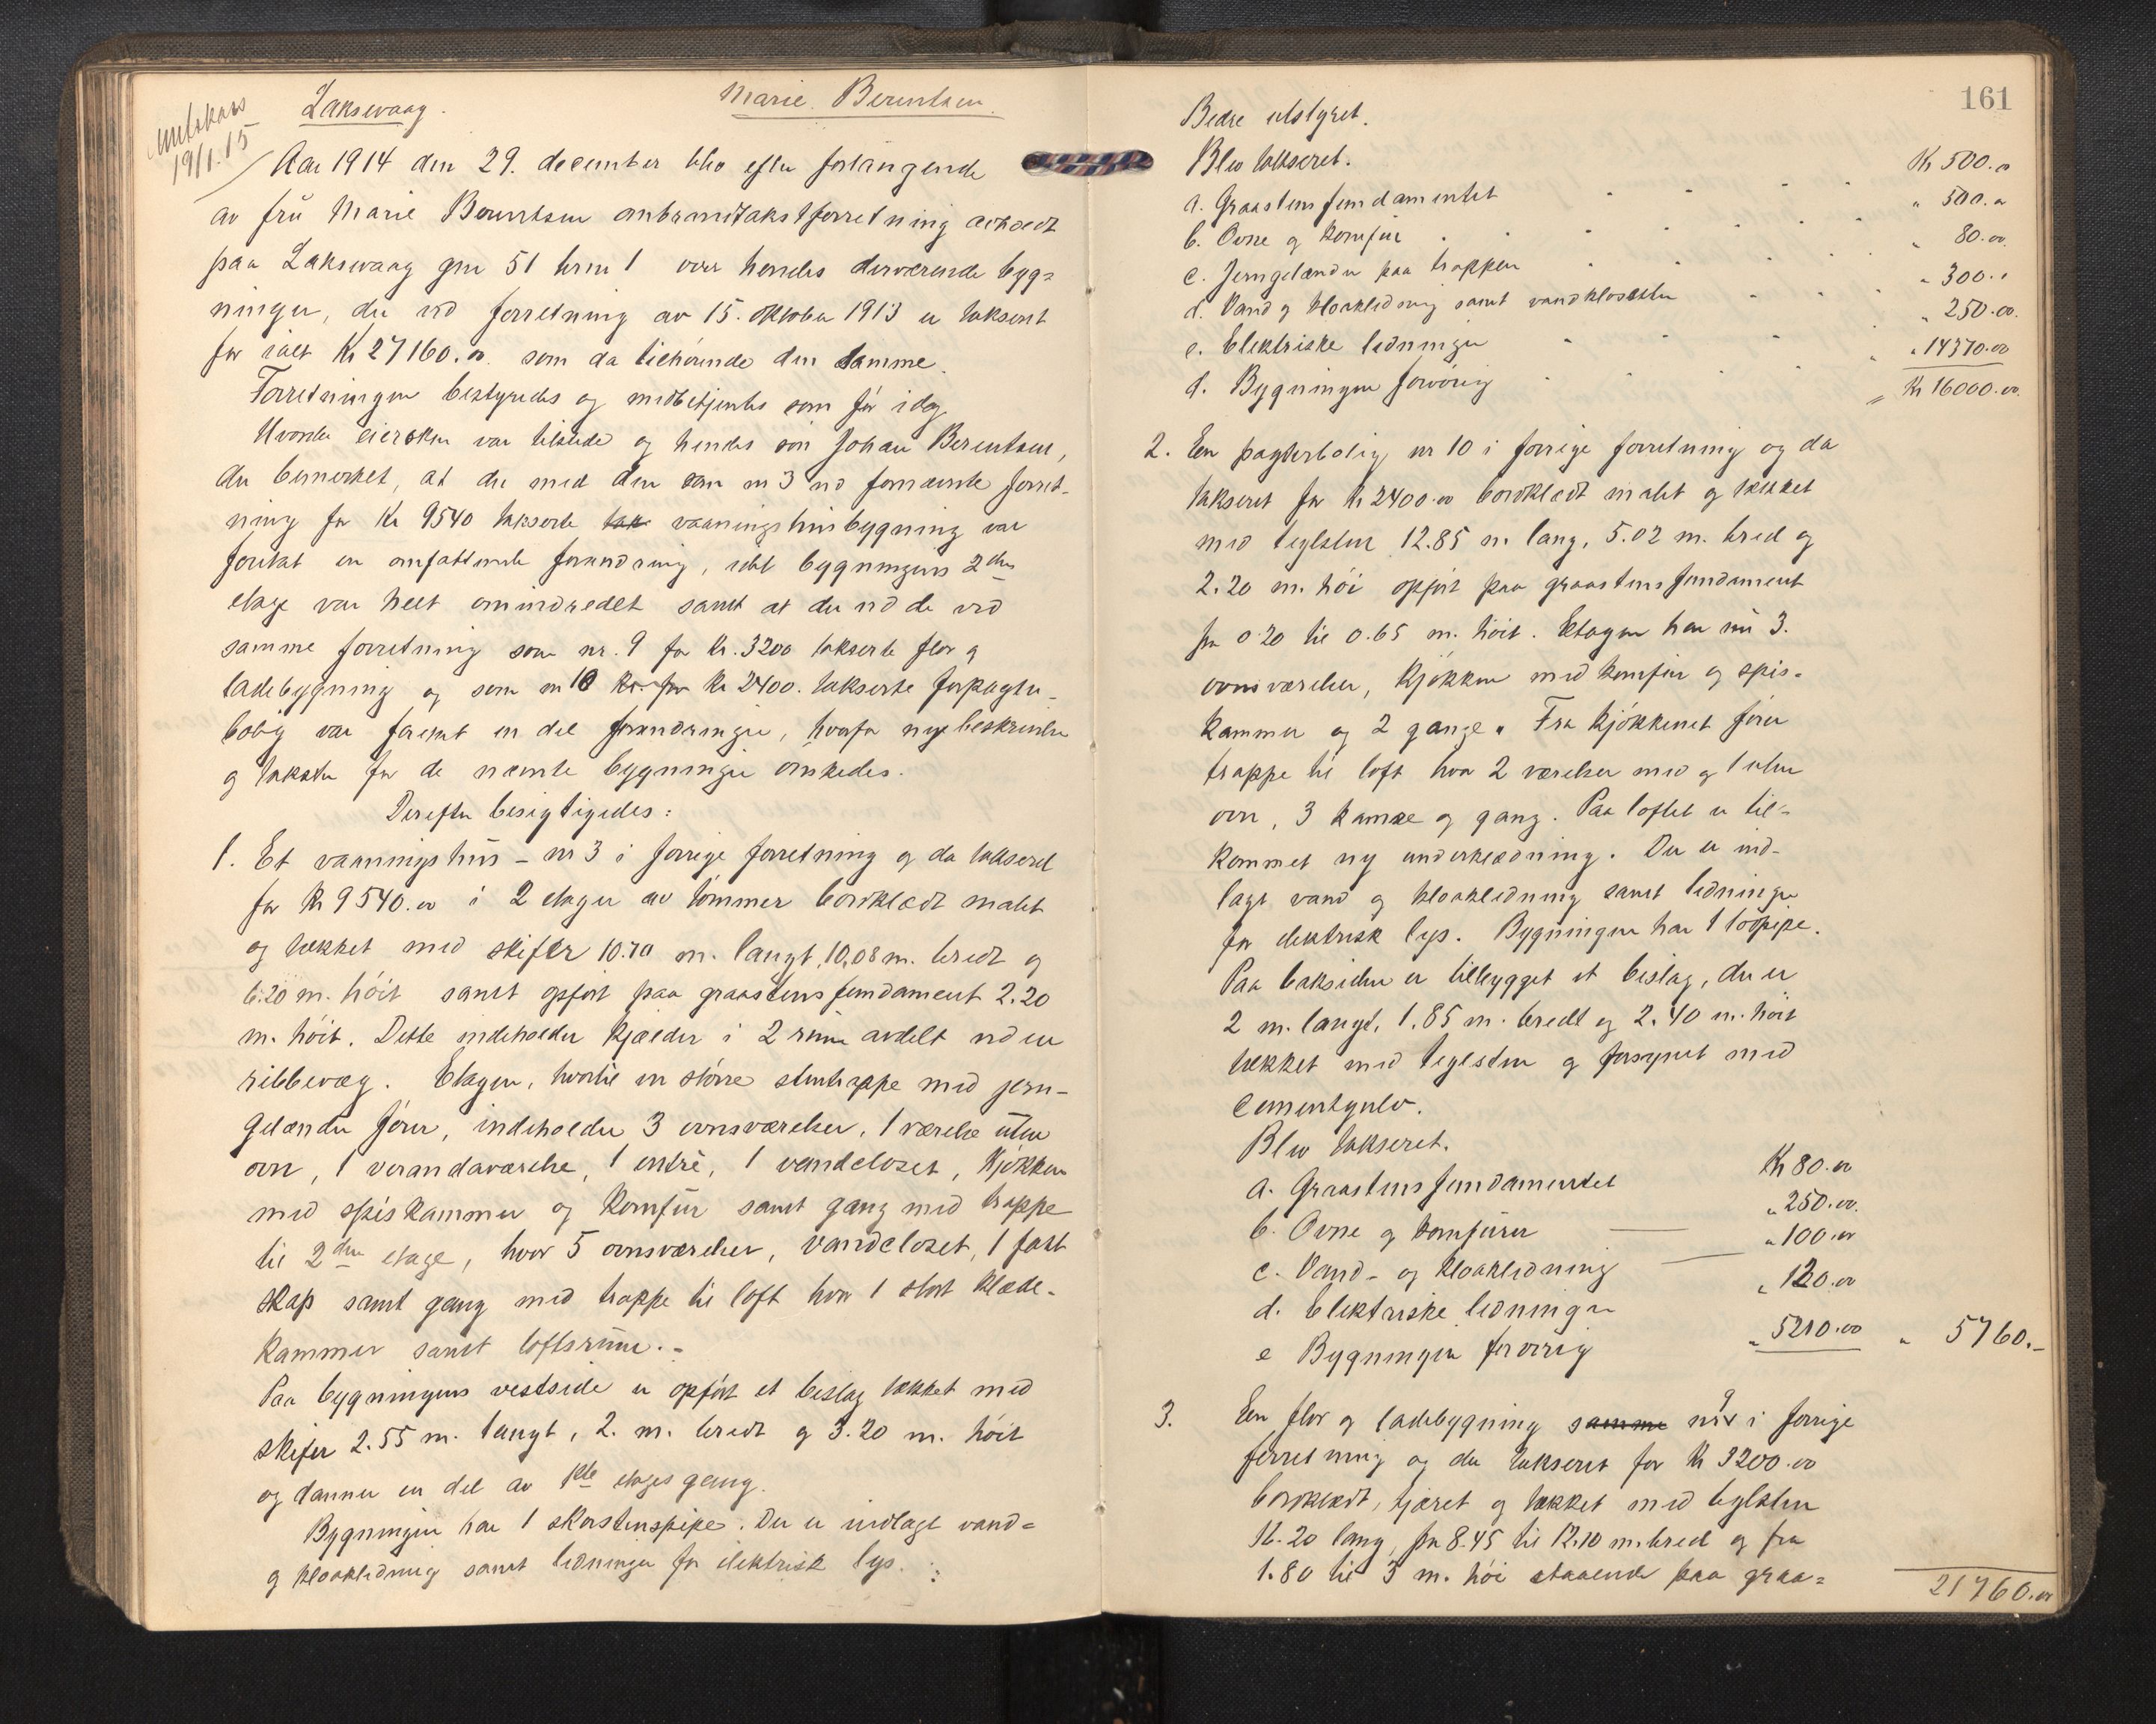 Utskrev
19/1.15
Laksevaag.
Marie Berentsen.
Aar 1914 den 29. december blev efter forlangende
av frü Marie Berentsen ombrandtakstforretning avholdt
paa Laksevaag gnr 51 brnr 1 over hendes derværende byg=
ninger, der ved forretning av 15. oktober 1913 er taksert
for ialt Kr 27160.00 som da tilhørende den samme.
Forretningen bestyredes og medbetjentes som før idag.
Hvorda eiersken var tilstede og hendes søn Johan Berentsen,
der bemerket, at der med den som nr 3 ved fornævnte forret-
ning for Kr 9540 takserte tak vaaningshusbygning var
foretat en omfattende forandring, idet bygningens 2den
etage var helt omindredet samt at der ved de ved
samme forretning som nr. 9 for Kr. 3200 takserte flor og
ladebygning og som nr 10 kr. for Kr 2400. takserte forpagter-
bolig var foretat en del forandringer, hvorfor nye beskrivelser
og takster for de nævnte bygninger ønskedes.
Derefter besigtigedes:
1. Et vaaningshüs - nr 3 i forrige forretning og da takseret
for Kr 9540.00 i 2 etager av tømmer bordklædt malet
og tækket med skifer 10.70 m. langt, 10,08 m. bredt og
6.20 m. høit samt opført paa graastensfundament 2.20
m. høit. Dette indeholder kjælder i 2 rüm avdelt ved en
ribbevæg. Etagen, hvortil en større stentrappe med jern-
gelænder fører, indeholder 3 ovnsværelser, 1 værelse uten
ovn, 1 verandaværelse, 1 entrè, 1 vandcloset, kjøkken
med spiskammer og komfür samt gang med trappe
til 2den etage, hvor 5 ovnsværelser, vandcloset, 1 fast
skap samt gang med trappe til loft hvor 1 stort klæde-
kammer samt loftsrüm.-
Paa bygningens vestside er opført et bislag tækket med
skifer 2.55 m. langt, 2. m. bredt og 3.20 m. høit
og danner en del av 1ste etages gang.
Bygningen har 1 skorstenspipe. Der er indlagt vand=
og kloakledning samt ledninger for elektrisk lys.
161
Bedre utstyret.
Blev takseret.
a. Graastensfundamentet Kr 500.00
b. Ovne og komfür " 500.00
c. Jerngelænder paa trappen " 80.00
d. Vand og kloakledning samt vandklosetter " 300.00
e. Elektriske ledninger " 250.00.
f. Bygningen forøvrig " 14370.00
Kr 16000.00.
2. En pagterbolig nr 10 i forrige forretning og da
takseret for Kr 2400.00 bordklædt malet og tækket
med teglsten 12.85 m. lang, 5.02 m. bred og
2.20 m. høi opført paa graastensfundament
fra 0.20 til 0.65 m. høit. Etagen har nü 3.
ovnsværelser, kjøkken med komfür og spis-
kammer og 2 gange. Fra kjøkkenet fører
trappe til loft hvor 2 værelser med og 1 uten
ovn, 3 kamre og gang. Paa loftet er til-
kommet ny underklædning. Der er ind-
lagt vand og kloakledning samt ledninger
for elektrisk lys. Bygningen har 1 pipe.
Paa baksiden er tilbygget et bislag, der er
2 m. langt, 1.85 m. bredt og 2.40 m. høit
tækket med teglsten og forsynet med
cementgulv.
Blev takseret.
a. Graastensfundamentet Kr 80.00
b. Ovne og komfürer " 250.00.
c. Vand- og kloakledning " 100.00
d. Elektriske ledninger " 120.00
e Bygningen forøvrig " 5210.00 " 5760.-
3. En flor og ladebygning samme nr 9 i forrige
forretning og da takseret for Kr 3200.00
bordklædt, tjæret og tækket med teglsten
16.20 lang, fra 8.45 til 12.10 m. bred og fra
1.80 til 3 m. høi staaende paa graa=
21760.00